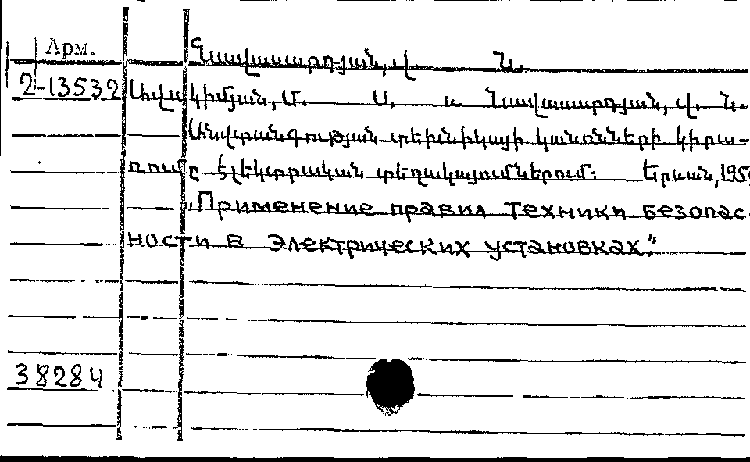 Арм.
Նավասարդյան, Վ. Ն.
2-13532 Ավակիմյան, Մ. Ս. և Նավասարդյան, Վ. Ն.
Անվտանգության տեխնիկայի կանոնների կիրա-
ռումը էլեկտրական տեղակայումներում: Երևան, 195
"Применение правил техники безопас-
ности в электрических установках."
38284